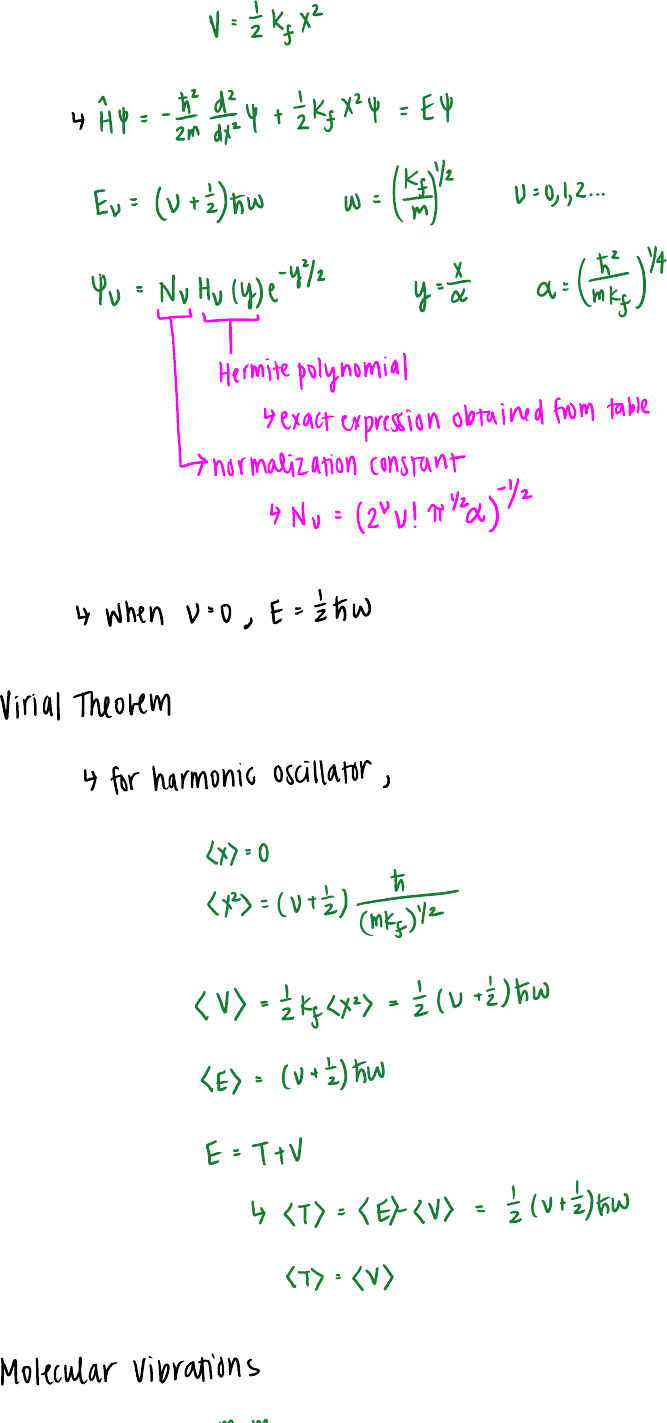 V = 1/2 k_f x²
↳ Ĥψ = -ħ²/2m d²/dx² ψ + 1/2 k_f x² ψ = Eψ
E_ν = (ν + 1/2)ħω ω = (k_f/m)^1/2 ν = 0,1,2...
ψ_ν = N_ν H_ν(y) e^(-y²/2) y = x/α α = (ħ²/mk_f)^1/4
Hermite polynomial
↳ exact expression obtained from table
→ normalization constant
↳ N_ν = (2^ν ν! π^1/2 α)^-1/2
↳ when ν = 0, E = 1/2 ħω
Virial Theorem
↳ for harmonic oscillator,
⟨x⟩ = 0
⟨x²⟩ = (ν + 1/2) ħ/(mk_f)^1/2
⟨V⟩ = 1/2 k_f ⟨x²⟩ = 1/2 (ν + 1/2)ħω
⟨E⟩ = (ν + 1/2)ħω
E = T + V
↳ ⟨T⟩ = ⟨E⟩-⟨V⟩ = 1/2 (ν + 1/2)ħω
⟨T⟩ = ⟨V⟩
Molecular Vibrations